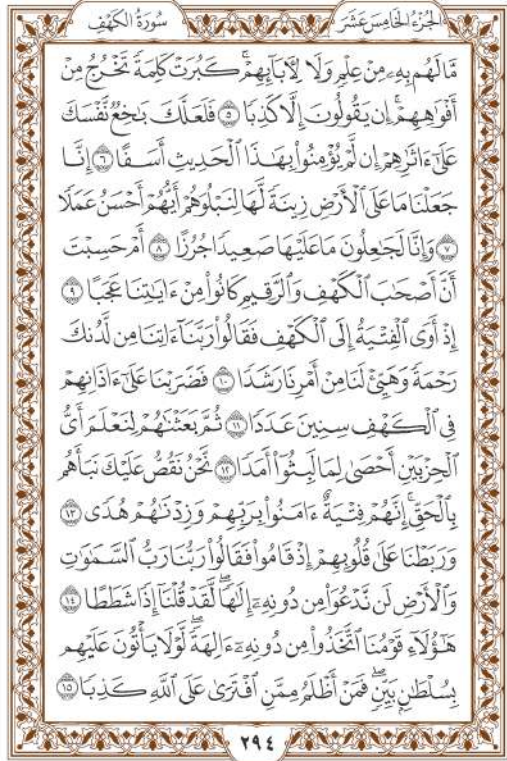 سُورَةُ الكَهْفِ الجُزْءُ الخَامِسَ عَشَرَ
مَّا لَهُم بِهِۦ مِنْ عِلْمٍ وَلَا لِأٓبَآئِهِمْۚ كَبُرَتْ كَلِمَةً تَخْرُجُ مِنْ
أَفْوَٰهِهِمْۚ إِن يَقُولُونَ إِلَّا كَذِبًا ٥ فَلَعَلَّكَ بَٰخِعٌ نَّفْسَكَ
عَلَىٰٓ ءَاثَٰرِهِمْ إِن لَّمْ يُؤْمِنُوا۟ بِهَٰذَا ٱلْحَدِيثِ أَسَفًا ٦ إِنَّا
جَعَلْنَا مَا عَلَى ٱلْأَرْضِ زِينَةً لَّهَا لِنَبْلُوَهُمْ أَيُّهُمْ أَحْسَنُ عَمَلًا
٧ وَإِنَّا لَجَٰعِلُونَ مَا عَلَيْهَا صَعِيدًا جُرُزًا ٨ أَمْ حَسِبْتَ
أَنَّ أَصْحَٰبَ ٱلْكَهْفِ وَٱلرَّقِيمِ كَانُوا۟ مِنْ ءَايَٰتِنَا عَجَبًا ٩
إِذْ أَوَى ٱلْفِتْيَةُ إِلَى ٱلْكَهْفِ فَقَالُوا۟ رَبَّنَآ ءَاتِنَا مِن لَّدُنكَ
رَحْمَةً وَهَيِّئْ لَنَا مِنْ أَمْرِنَا رَشَدًا ١٠ فَضَرَبْنَا عَلَىٰٓ ءَاذَانِهِمْ
فِى ٱلْكَهْفِ سِنِينَ عَدَدًا ١١ ثُمَّ بَعَثْنَٰهُمْ لِنَعْلَمَ أَىُّ
ٱلْحِزْبَيْنِ أَحْصَىٰ لِمَا لَبِثُوٓا۟ أَمَدًا ١٢ نَّحْنُ نَقُصُّ عَلَيْكَ نَبَأَهُم
بِٱلْحَقِّۚ إِنَّهُمْ فِتْيَةٌ ءَامَنُوا۟ بِرَبِّهِمْ وَزِدْنَٰهُمْ هُدًى ١٣
وَرَبَطْنَا عَلَىٰ قُلُوبِهِمْ إِذْ قَامُوا۟ فَقَالُوا۟ رَبُّنَا رَبُّ ٱلسَّمَٰوَٰتِ
وَٱلْأَرْضِ لَن نَّدْعُوَا۟ مِن دُونِهِۦٓ إِلَٰهًاۖ لَّقَدْ قُلْنَآ إِذًا شَطَطًا ١٤
هَٰٓؤُلَآءِ قَوْمُنَا ٱتَّخَذُوا۟ مِن دُونِهِۦٓ ءَالِهَةًۖ لَّوْلَا يَأْتُونَ عَلَيْهِم
بِسُلْطَٰنٍۭ بَيِّنٍۖ فَمَنْ أَظْلَمُ مِمَّنِ ٱفْتَرَىٰ عَلَى ٱللَّهِ كَذِبًا ١٥
٢٩٤